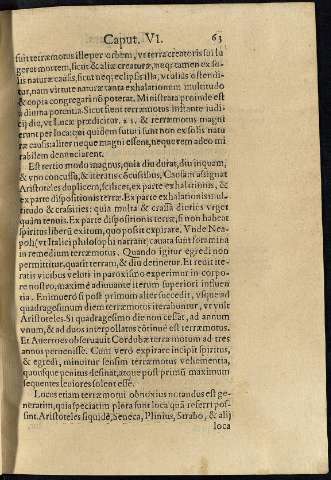 Caput. VI. 63
fuit terræmotus ille per orbem, vt terra creatoris sui lu
geret mortem, sicut & aliæ creaturæ, neq; tamen ex so-
lis naturæ causis, sicut neq; eclipsis illa, vt alius ostendi-
tur, nam virtute naturæ tanta exhalationem multitudo
& copia congregari nõ poterat. Ministrata proinde est
a diuina potentia. Sicut fient terræmotus instante iudi-
cij die, vt Lucæ prædicitur. 21. & terræmotus magni
erunt per loca: qui quidem futuri sunt non ex solis natu
ræ causis: aliter neque magni essent, neque rem adeo mi
rabilem denunciarent.
Est tertio modo magnus, quia diu durat, diu inquam,
& vno concussu, & iteratis cõcussibus, Causam assignat
Aristoteles duplicem, scilicet, ex parte exhalationis, &
ex parte dispositionis terræ. Ex parte exhalationis mul-
titudo & crassities: quia multa & crassa diutius vrget
quàm tenuis. Ex parte dispositionis terræ, si non habeat
spiritus liberũ exitum, quo possit expirare. Vnde Nea-
poli (vt Italici philosophi narrant) cauata sunt foramina
in remedium terræmotus. Quando igitur egredi non
permittitur, quatit terram, & diu detinetur. Et redit ite-
ratis vicibus veloti in paroxismo experimur in corpo-
re nostro, maximè adiuuante iterum superiori influen
tia. Enimuerò si post primum alter succedit, vsque ad
quadragesimum diem terræmotus iterabuntur, vt vult
Aristoteles. Si quadragesimo die non cessãt, ad annum
vnum, & ad duos interpollatos cõtinuè est terræmotus.
Et Auerroes obseruauit Cordubæ terræmotum ad tres
annos permansisse. Cum verò expirare incipit spiritus,
& egredi, minuitur sensim terræmotus vehementia,
quousque penitus desinat, atque post primũ maximum
sequentes leuiores solent esse.
Locus etiam terræmotui obnoxius notandus est ge-
neratim, quia speciatim plera sunt loca quã referri pos-
sint. Aristoteles siquidẽ, Seneca, Plinius, Strabo, & alij
loca